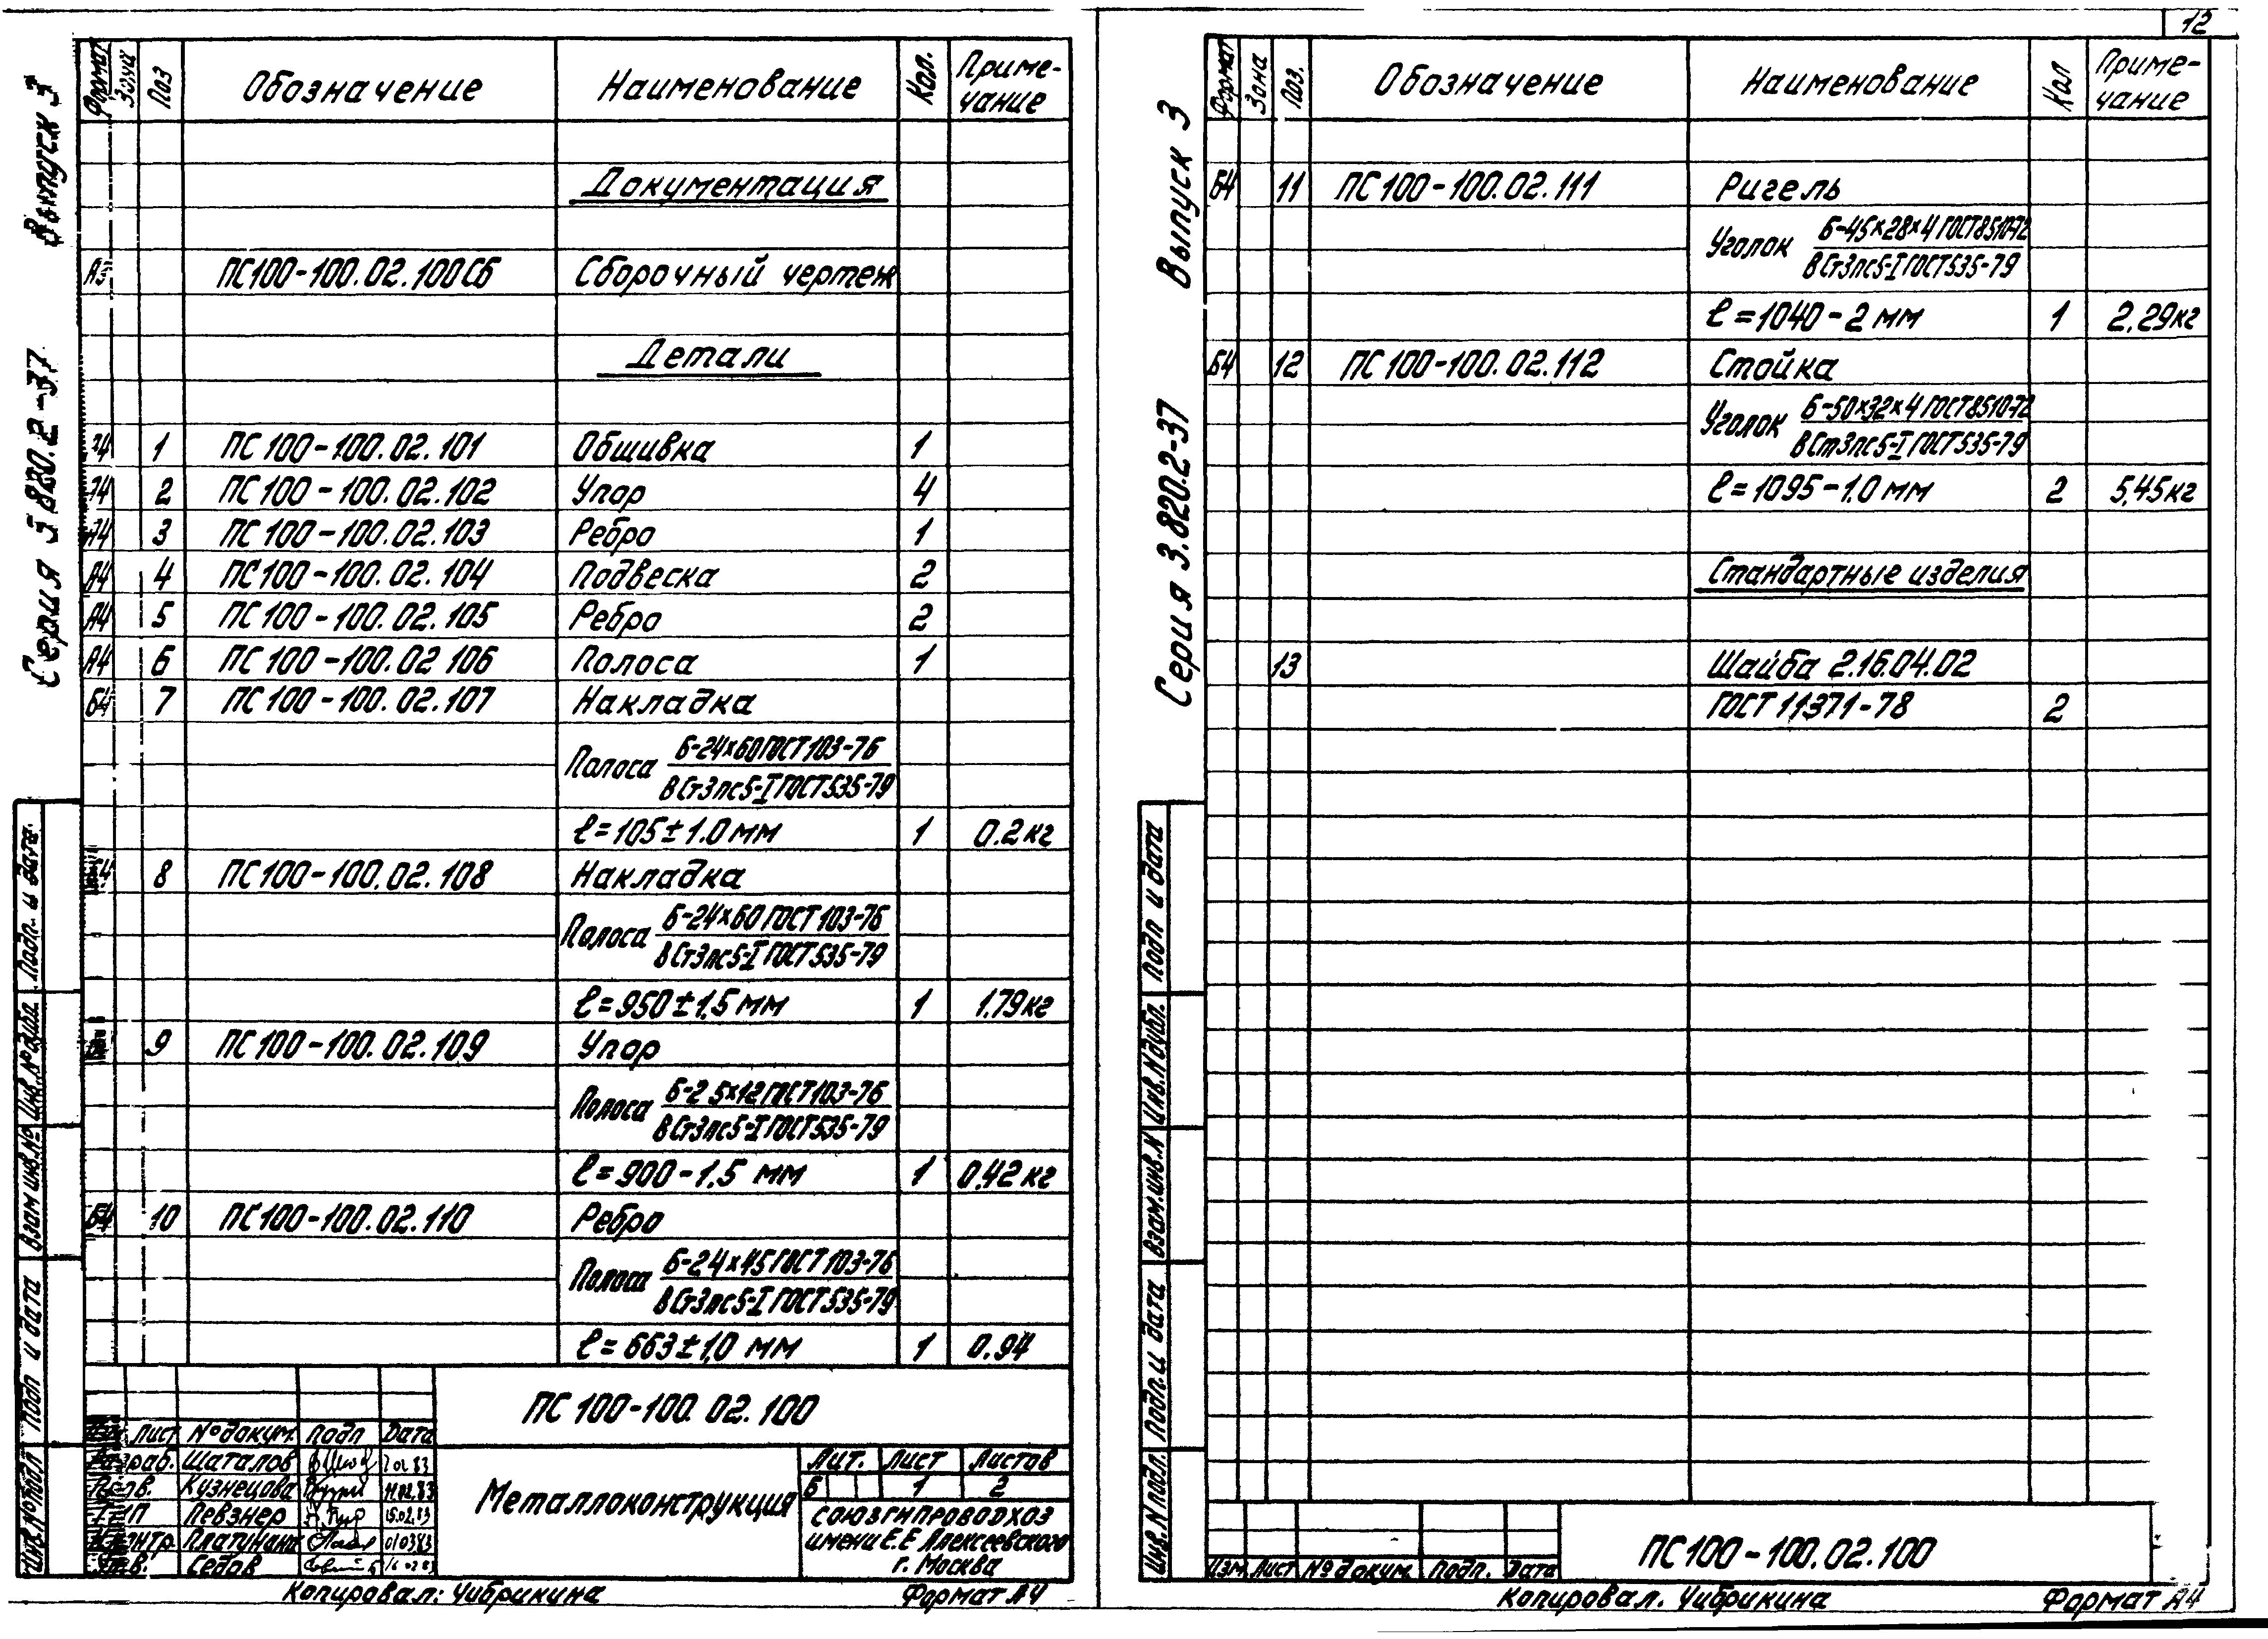 12
Серия 3.820.2-37 Выпуск 3
Формат Зона Поз Обозначение Наименование Кол. Приме-
чание
Документация
А3 ПС100-100.02.100СБ Сборочный чертеж
Детали
1 ПС100-100.02.101 Обшивка 1
2 ПС100-100.02.102 Упор 4
А4 3 ПС100-100.02.103 Ребро 1
А4 4 ПС100-100.02.104 Подвеска 2
А4 5 ПС100-100.02.105 Ребро 2
А4 6 ПС100-100.02 106 Полоса 1
Б4 7 ПС100-100.02.107 Накладка
Полоса Б-24х60 ГОСТ 103-76
ВСт3пс5-I ГОСТ 535-79
ℓ=105±1.0 мм 1 0.2кг
8 ПС100-100.02.108 Накладка
Полоса Б-24х60 ГОСТ 103-76
ВСт3пс5-I ГОСТ 535-79
ℓ=950±1.5 мм 1 1.79кг
9 ПС100-100.02.109 Упор
Полоса Б-2 5х12 ГОСТ 103-76
ВСт3пс5-I ГОСТ 535-79
ℓ=900-1.5 мм 1 0.42кг
Б4 10 ПС100-100.02.110 Ребро
Полоса Б-24х45 ГОСТ 103-76
ВСт3пс5-I ГОСТ 535-79
ℓ=663±1,0 мм 1 0.94
ПС 100-100.02.100
Лист № докум. Подп Дата
Разраб. Шаталов
Пров. Кузнецова 11.02.83
ГИП Певзнер 15.02.83
Н.контр. Платунина 010383
Утв. Седов
Металлоконструкция
Лит. Лист Листов
Б 1 2
СОЮЗГИПРОВОДХОЗ
имени Е.Е Алексеевского
г. Москва
Копировал: Чибрикина Формат А4
Инв.№ подл Подп и дата Взам инв.№ Инв.№ дубл. Подп. и дата.
Серия 3.820.2-37 Выпуск 3
Формат Зона Поз. Обозначение Наименование Кол Приме-
чание
Б4 11 ПС100-100.02.111 Ригель
Уголок Б-45х28х4 ГОСТ 8510-72
ВСт3пс5-I ГОСТ 535-79
ℓ=1040-2 мм 1 2.29кг
Б4 12 ПС100-100.02.112 Стойка
Уголок Б-50х32х4 ГОСТ 8510-72
ВСт3пс5-I ГОСТ 535-79
ℓ=1095-1.0 мм 2 5,45кг
Стандартные изделия
13 Шайба 2.16.04.02
ГОСТ 11371-78 2
ПС100-100.02.100
Изм Лист № докум. Подп. Дата
Копировал. Чибрикина Формат А4
Инв.N подл. Подп. и дата Взам.инв.N Инв.N дубл. Подп и дата